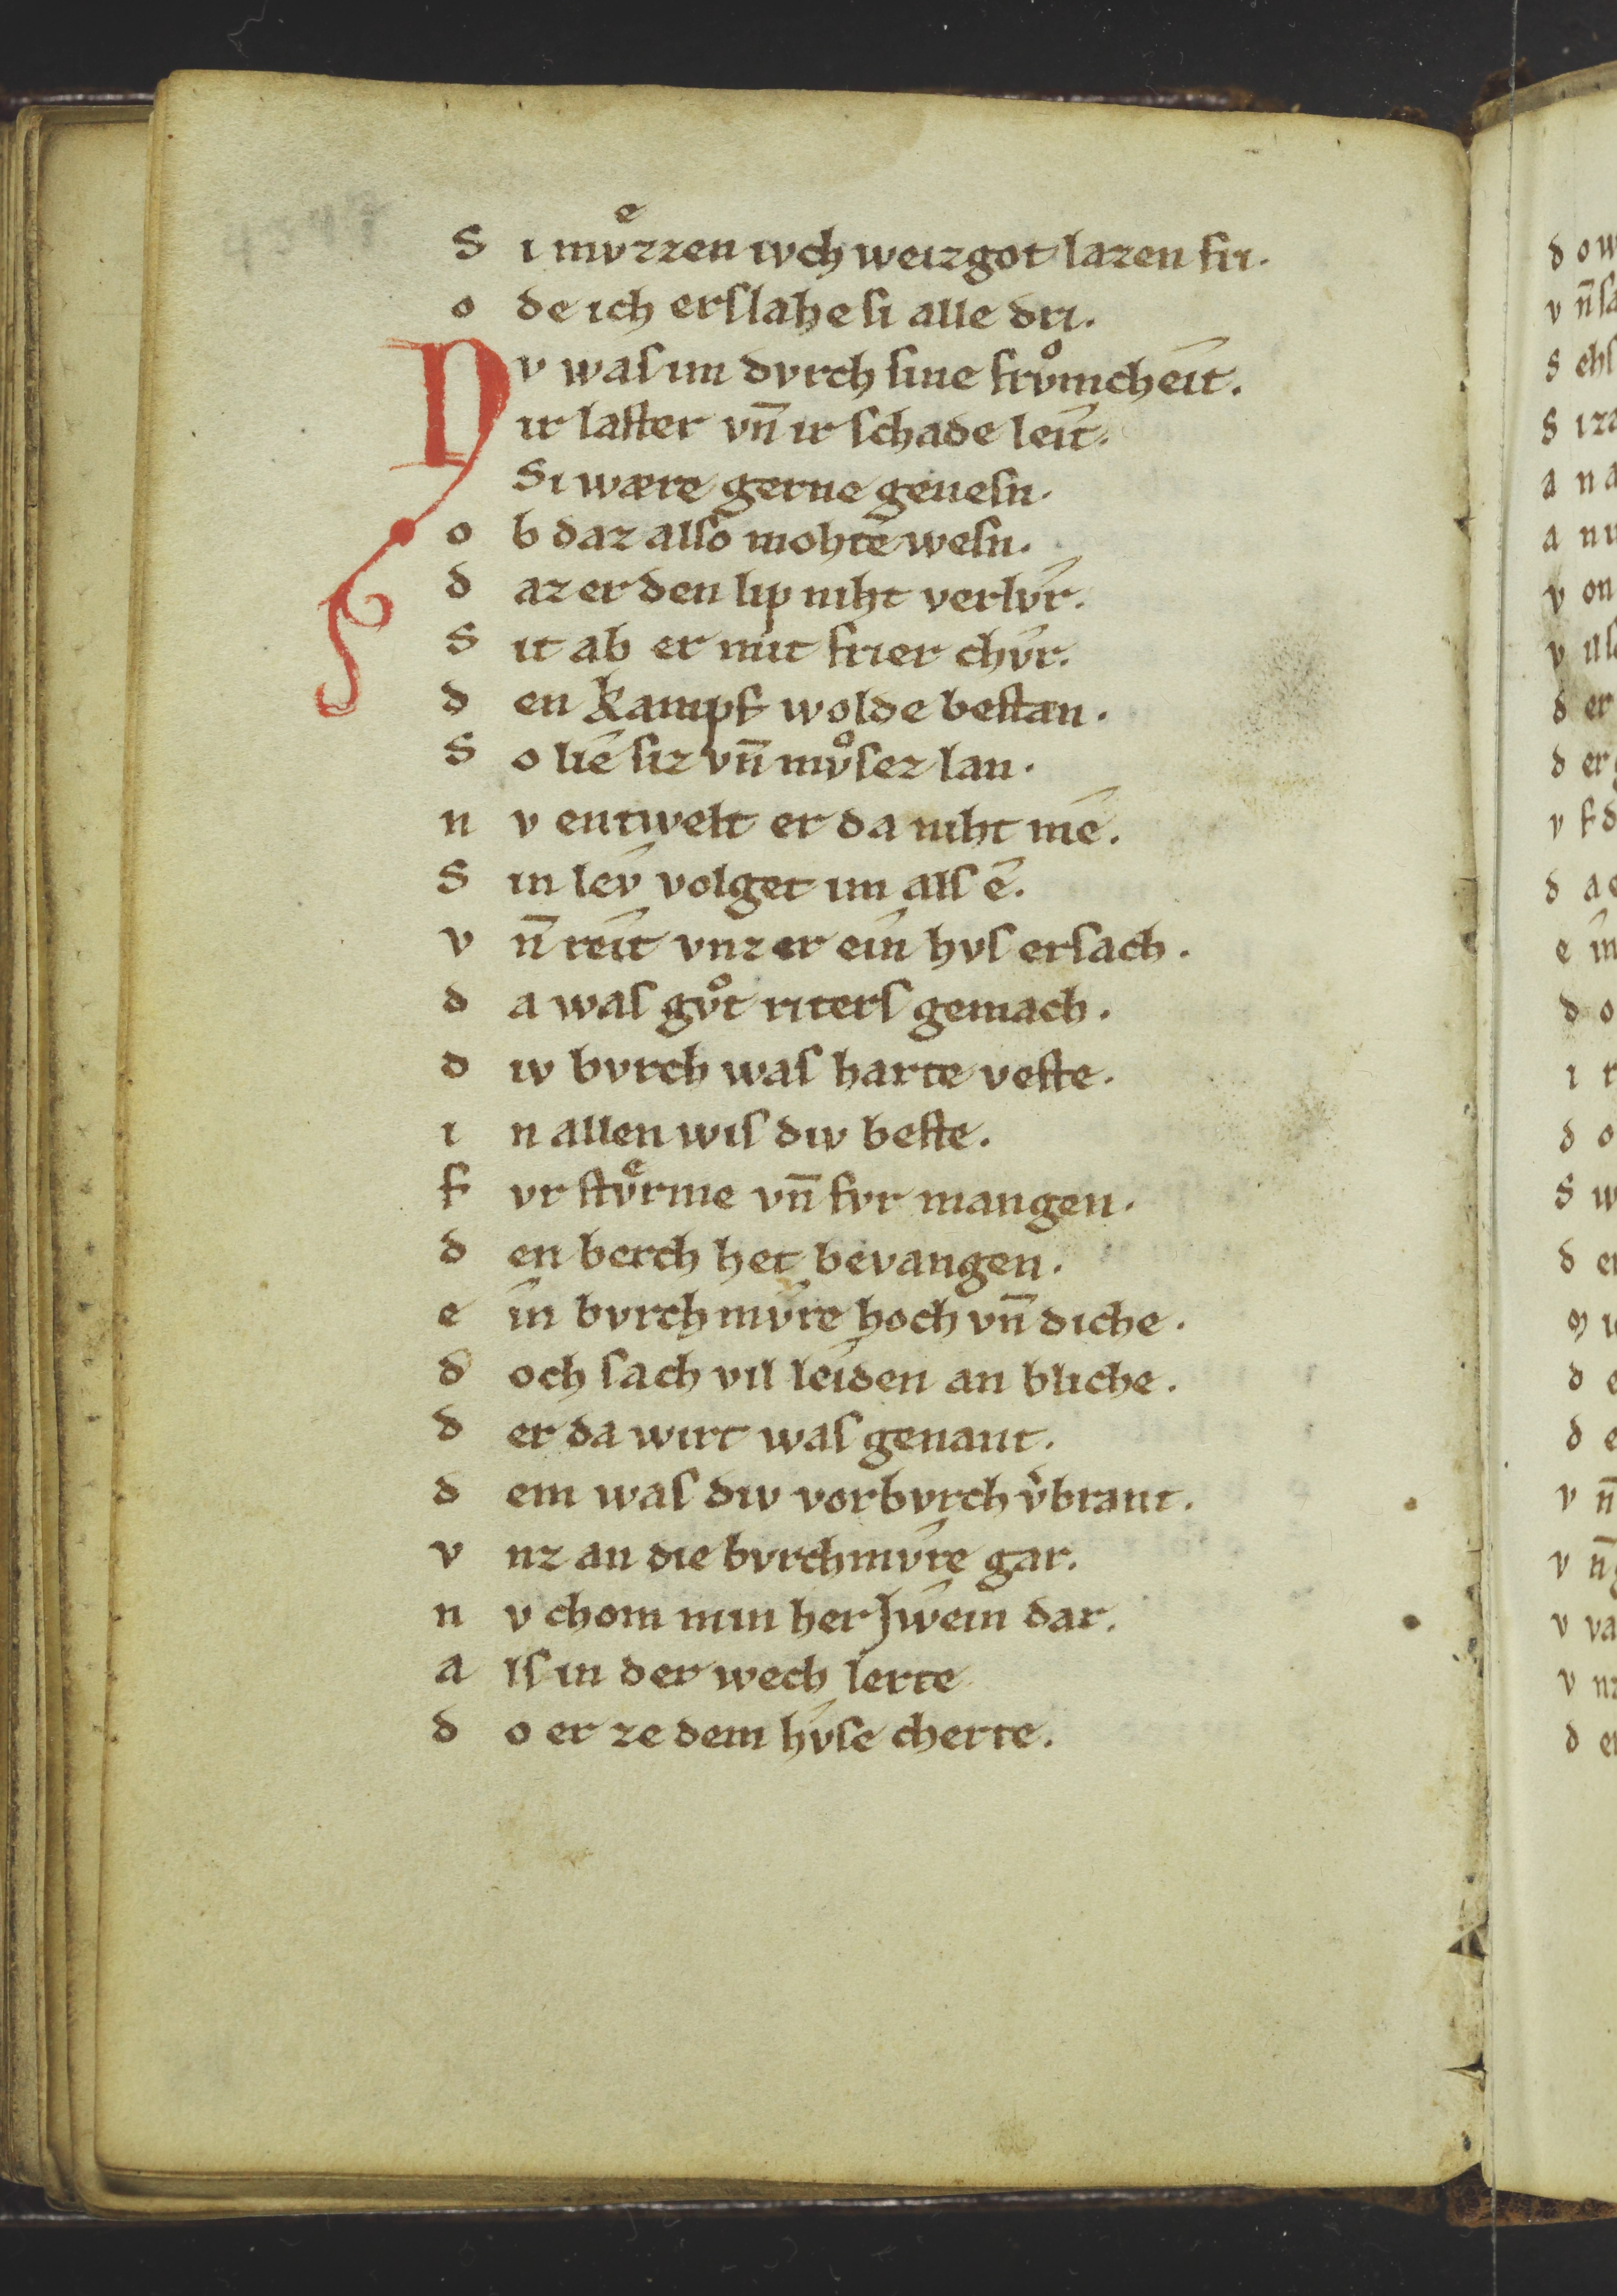 S i mvͤzzen iwch weizgot lazen fri.
o de ich erslahe si alle dri.
N v was im dvrch sine frvͦmcheît.
ir laster vn̄ ir schade leît.
Si wære gerne genesn.
o b daz also mohtê wesn.
d az er den lip niht verlv̂r.
S it ab er mit frier chv̂r.
d en kampf wolde bestan.
S o lîe siz vn̄ mvͦsez lan.
n v entwelt er da niht mê.
S in lev̂ volget im als ê.
v n̄ reît vnz er eîn hvs ersach.
d a was gvͦt riters gemach.
d iv bvrch was harte veste.
i n allen wis div beste.
f vr stvͤrme vn̄ fvr mangen.
d en berch het bevangen.
e în bvrch mv̂re hoch vn̄ diche.
d och sach vil leîden an bliche.
d er da wirt was genant.
d em was div vorbvrch v̓brant.
v nz an die bvrchmv̂re gar.
n v chom min her Jweîn dar.
a ls in der wech lerte
d o er ze dem hv̂se cherte.